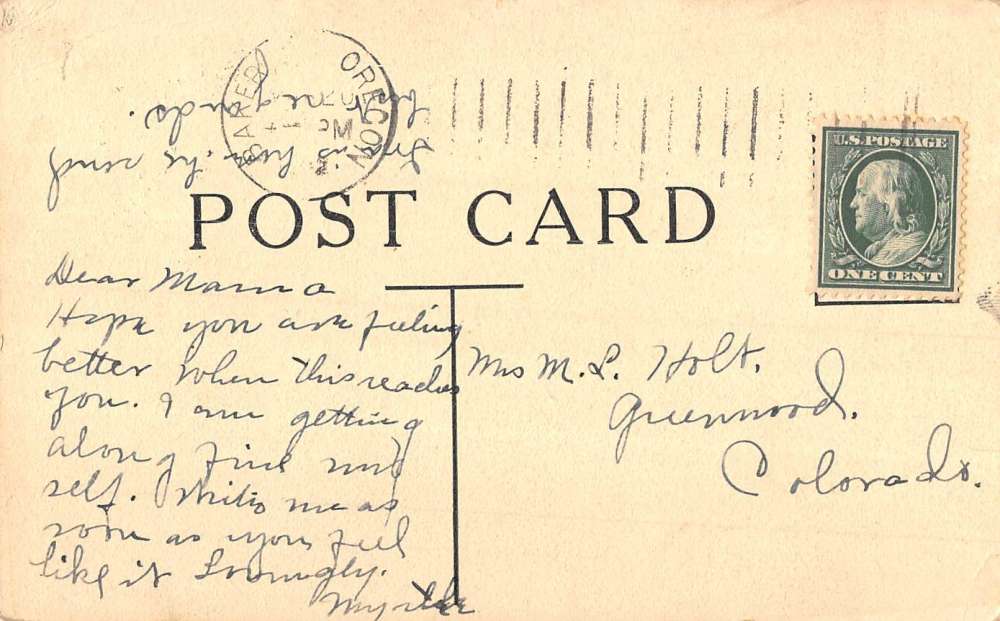 BAKER OREGON
PM
U.S. POSTAGE
ONE CENT
POST CARD
Dear Mama
Hope you are feeling
better when this reaches
you. I am getting
along fine my
self. Write me as
soon as you feel
like it Lovingly.
Myrtle
Mrs M. L. Holt.
Greenwood.
Colorado.
is here he
regards.